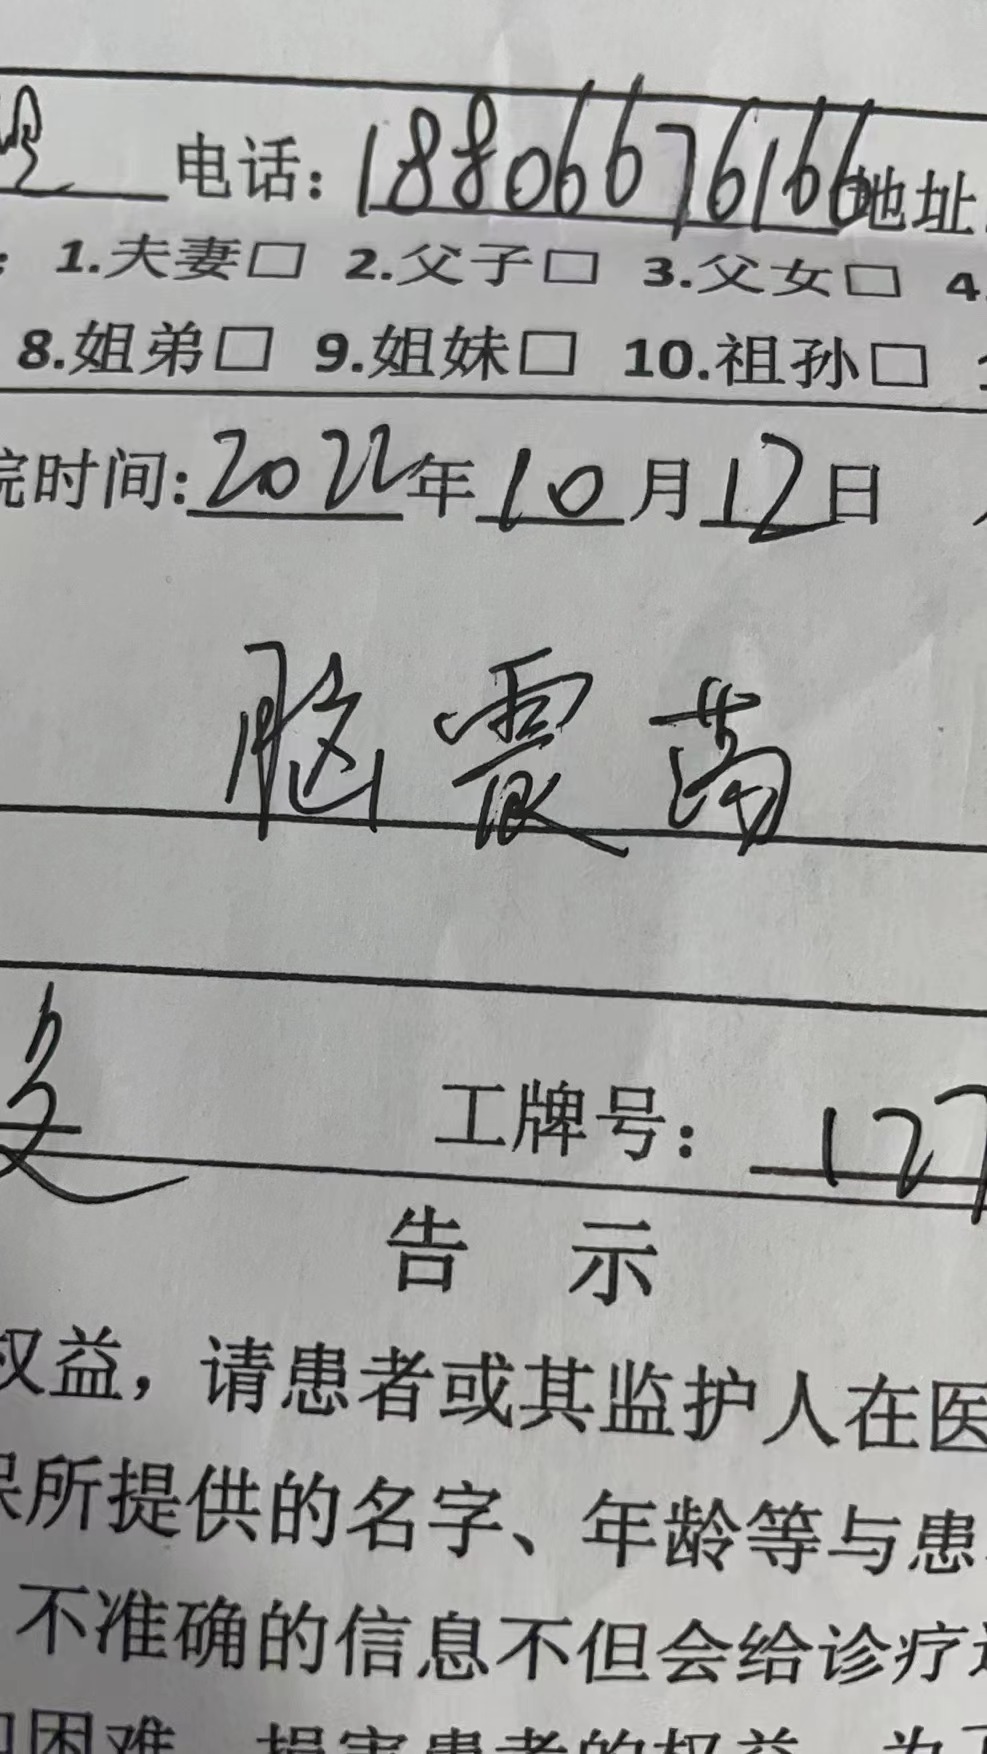 电话：18806676166地址
：1.夫妻□ 2.父子□ 3.父女□ 4.
8.姐弟□ 9.姐妹□ 10.祖孙□
院时间:2022年10月12日
脑震荡
工牌号：127
告 示
权益，请患者或其监护人在医
保所提供的名字、年龄等与患
不准确的信息不但会给诊疗
和困难，损害患者的权益，为了